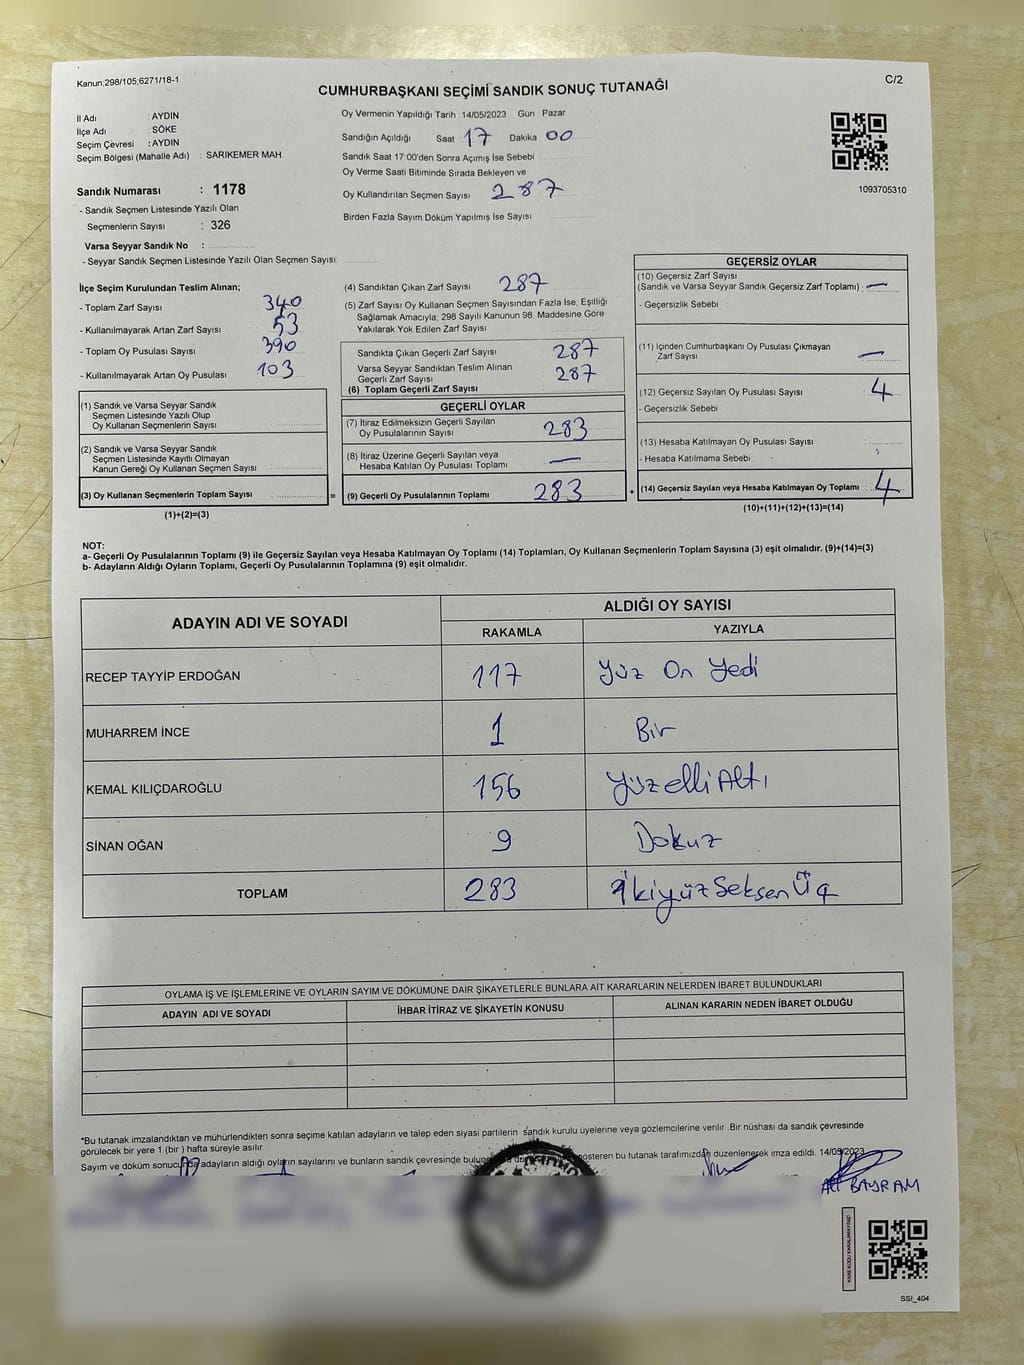 Kanun;298/105;6271/18-1
C/2
CUMHURBAŞKANI SEÇİMİ SANDIK SONUÇ TUTANAĞI
İl Adı : AYDIN
İlçe Adı : SÖKE
Seçim Çevresi : AYDIN
Seçim Bölgesi (Mahalle Adı) : SARIKEMER MAH.
Sandık Numarası : 1178
- Sandık Seçmen Listesinde Yazılı Olan
Seçmenlerin Sayısı : 326
Varsa Seyyar Sandık No :
- Seyyar Sandık Seçmen Listesinde Yazılı Olan Seçmen Sayısı:
Oy Vermenin Yapıldığı Tarih : 14/05/2023 Gün Pazar
Sandığın Açıldığı Saat 17 Dakika 00
Sandık Saat 17:00'den Sonra Açımış İse Sebebi
Oy Verme Saati Bitiminde Sırada Bekleyen ve
Oy Kullandırılan Seçmen Sayısı 287
Birden Fazla Sayım Döküm Yapılmış İse Sayısı
1093705310
İlçe Seçim Kurulundan Teslim Alınan;
- Toplam Zarf Sayısı 340
- Kullanılmayarak Artan Zarf Sayısı 53
- Toplam Oy Pusulası Sayısı 390
- Kullanılmayarak Artan Oy Pusulası 103
(1) Sandık ve Varsa Seyyar Sandık
Seçmen Listesinde Yazılı Olup
Oy Kullanan Seçmenlerin Sayısı
(2) Sandık ve Varsa Seyyar Sandık
Seçmen Listesinde Kayıtlı Olmayan
Kanun Gereği Oy Kullanan Seçmen Sayısı
(3) Oy Kullanan Seçmenlerin Toplam Sayısı =
(1)+(2)=(3)
(4) Sandıktan Çıkan Zarf Sayısı 287
(5) Zarf Sayısı Oy Kullanan Seçmen Sayısından Fazla İse, Eşitliği
Sağlamak Amacıyla; 298 Sayılı Kanunun 98. Maddesine Göre
Yakılarak Yok Edilen Zarf Sayısı
Sandıkta Çıkan Geçerli Zarf Sayısı 287
Varsa Seyyar Sandıktan Teslim Alınan
Geçerli Zarf Sayısı 287
(6) Toplam Geçerli Zarf Sayısı
GEÇERLİ OYLAR
(7) İtiraz Edilmeksizin Geçerli Sayılan
Oy Pusulalarının Sayısı 283
(8) İtiraz Üzerine Geçerli Sayılan veya
Hesaba Katılan Oy Pusulası Toplamı —
(9) Geçerli Oy Pusulalarının Toplamı 283 +
GEÇERSİZ OYLAR
(10) Geçersiz Zarf Sayısı
(Sandık ve Varsa Seyyar Sandık Geçersiz Zarf Toplamı) : —
- Geçersizlik Sebebi
(11) İçinden Cumhurbaşkanı Oy Pusulası Çıkmayan
Zarf Sayısı —
(12) Geçersiz Sayılan Oy Pusulası Sayısı : 4
- Geçersizlik Sebebi
(13) Hesaba Katılmayan Oy Pusulası Sayısı :
- Hesaba Katılmama Sebebi :
(14) Geçersiz Sayılan veya Hesaba Katılmayan Oy Toplamı : 4
(10)+(11)+(12)+(13)=(14)
NOT:
a- Geçerli Oy Pusulalarının Toplamı (9) ile Geçersiz Sayılan veya Hesaba Katılmayan Oy Toplamı (14) Toplamları, Oy Kullanan Seçmenlerin Toplam Sayısına (3) eşit olmalıdır. (9)+(14)=(3)
b- Adayların Aldığı Oyların Toplamı, Geçerli Oy Pusulalarının Toplamına (9) eşit olmalıdır.
ADAYIN ADI VE SOYADI
ALDIĞI OY SAYISI
RAKAMLA YAZIYLA
RECEP TAYYİP ERDOĞAN 117 Yüz On Yedi
MUHARREM İNCE 1 Bir
KEMAL KILIÇDAROĞLU 156 YüzelliAltı
SİNAN OĞAN 9 Dokuz
TOPLAM 283 İkiyüzSeksenÜç
OYLAMA İŞ VE İŞLEMLERİNE VE OYLARIN SAYIM VE DÖKÜMÜNE DAİR ŞİKAYETLERLE BUNLARA AİT KARARLARIN NELERDEN İBARET BULUNDUKLARI
ADAYIN ADI VE SOYADI İHBAR İTİRAZ VE ŞİKAYETİN KONUSU ALINAN KARARIN NEDEN İBARET OLDUĞU
*Bu tutanak imzalandıktan ve mühürlendikten sonra seçime katılan adayların ve talep eden siyasi partilerin sandık kurulu üyelerine veya gözlemcilerine verilir. Bir nüshası da sandık çevresinde
görülecek bir yere 1 (bir ) hafta süreyle asılır.
Sayım ve döküm sonucunda adayların aldığı oyların sayılarını ve bunların sandık çevresinde gösteren bu tutanak tarafımızdan düzenlenerek imza edildi. 14/05/2023
ALİ BAYRAM
SSI_404